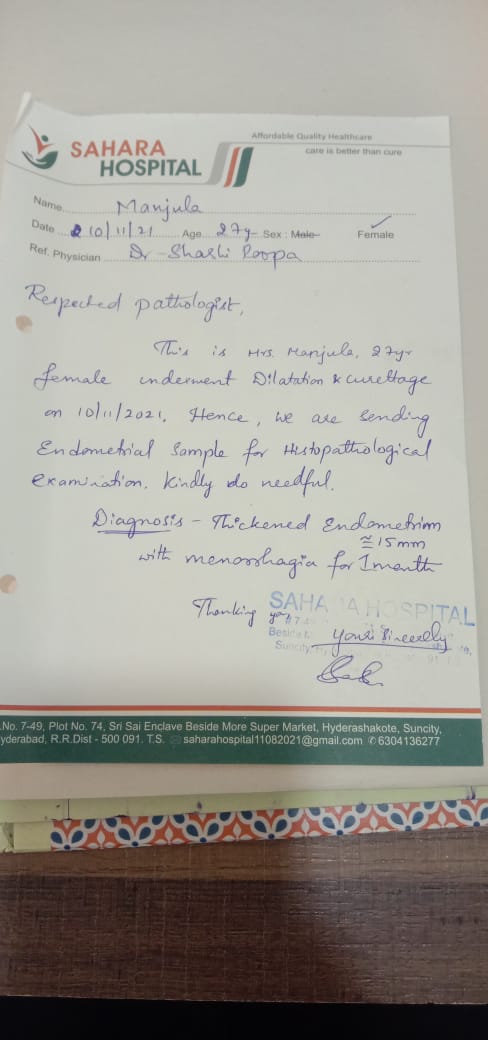 SAHARA
HOSPITAL
Affordable Quality Healthcare
care is better than cure
Name Manjula
Date 10/11/21 Age 27y Sex : Male Female
Ref. Physician Dr - Shashi Roopa
Respected pathologist,
This is Mrs. Manjula, 27yr
female underwent Dilatation & curettage
on 10/11/2021. Hence, we are sending
Endometrial Sample for Histopathological
examination. Kindly do needful.
Diagnosis - Thickened Endometrium
≅ 15mm
with menorrhagia for 1 month
Thanking you
SAHA A HOSPITAL
Beside
Suncity,
yours Sincerely
.No. 7-49, Plot No. 74, Sri Sai Enclave Beside More Super Market, Hyderashakote, Suncity,
yderabad, R.R.Dist - 500 091. T.S. saharahospital11082021@gmail.com 6304136277